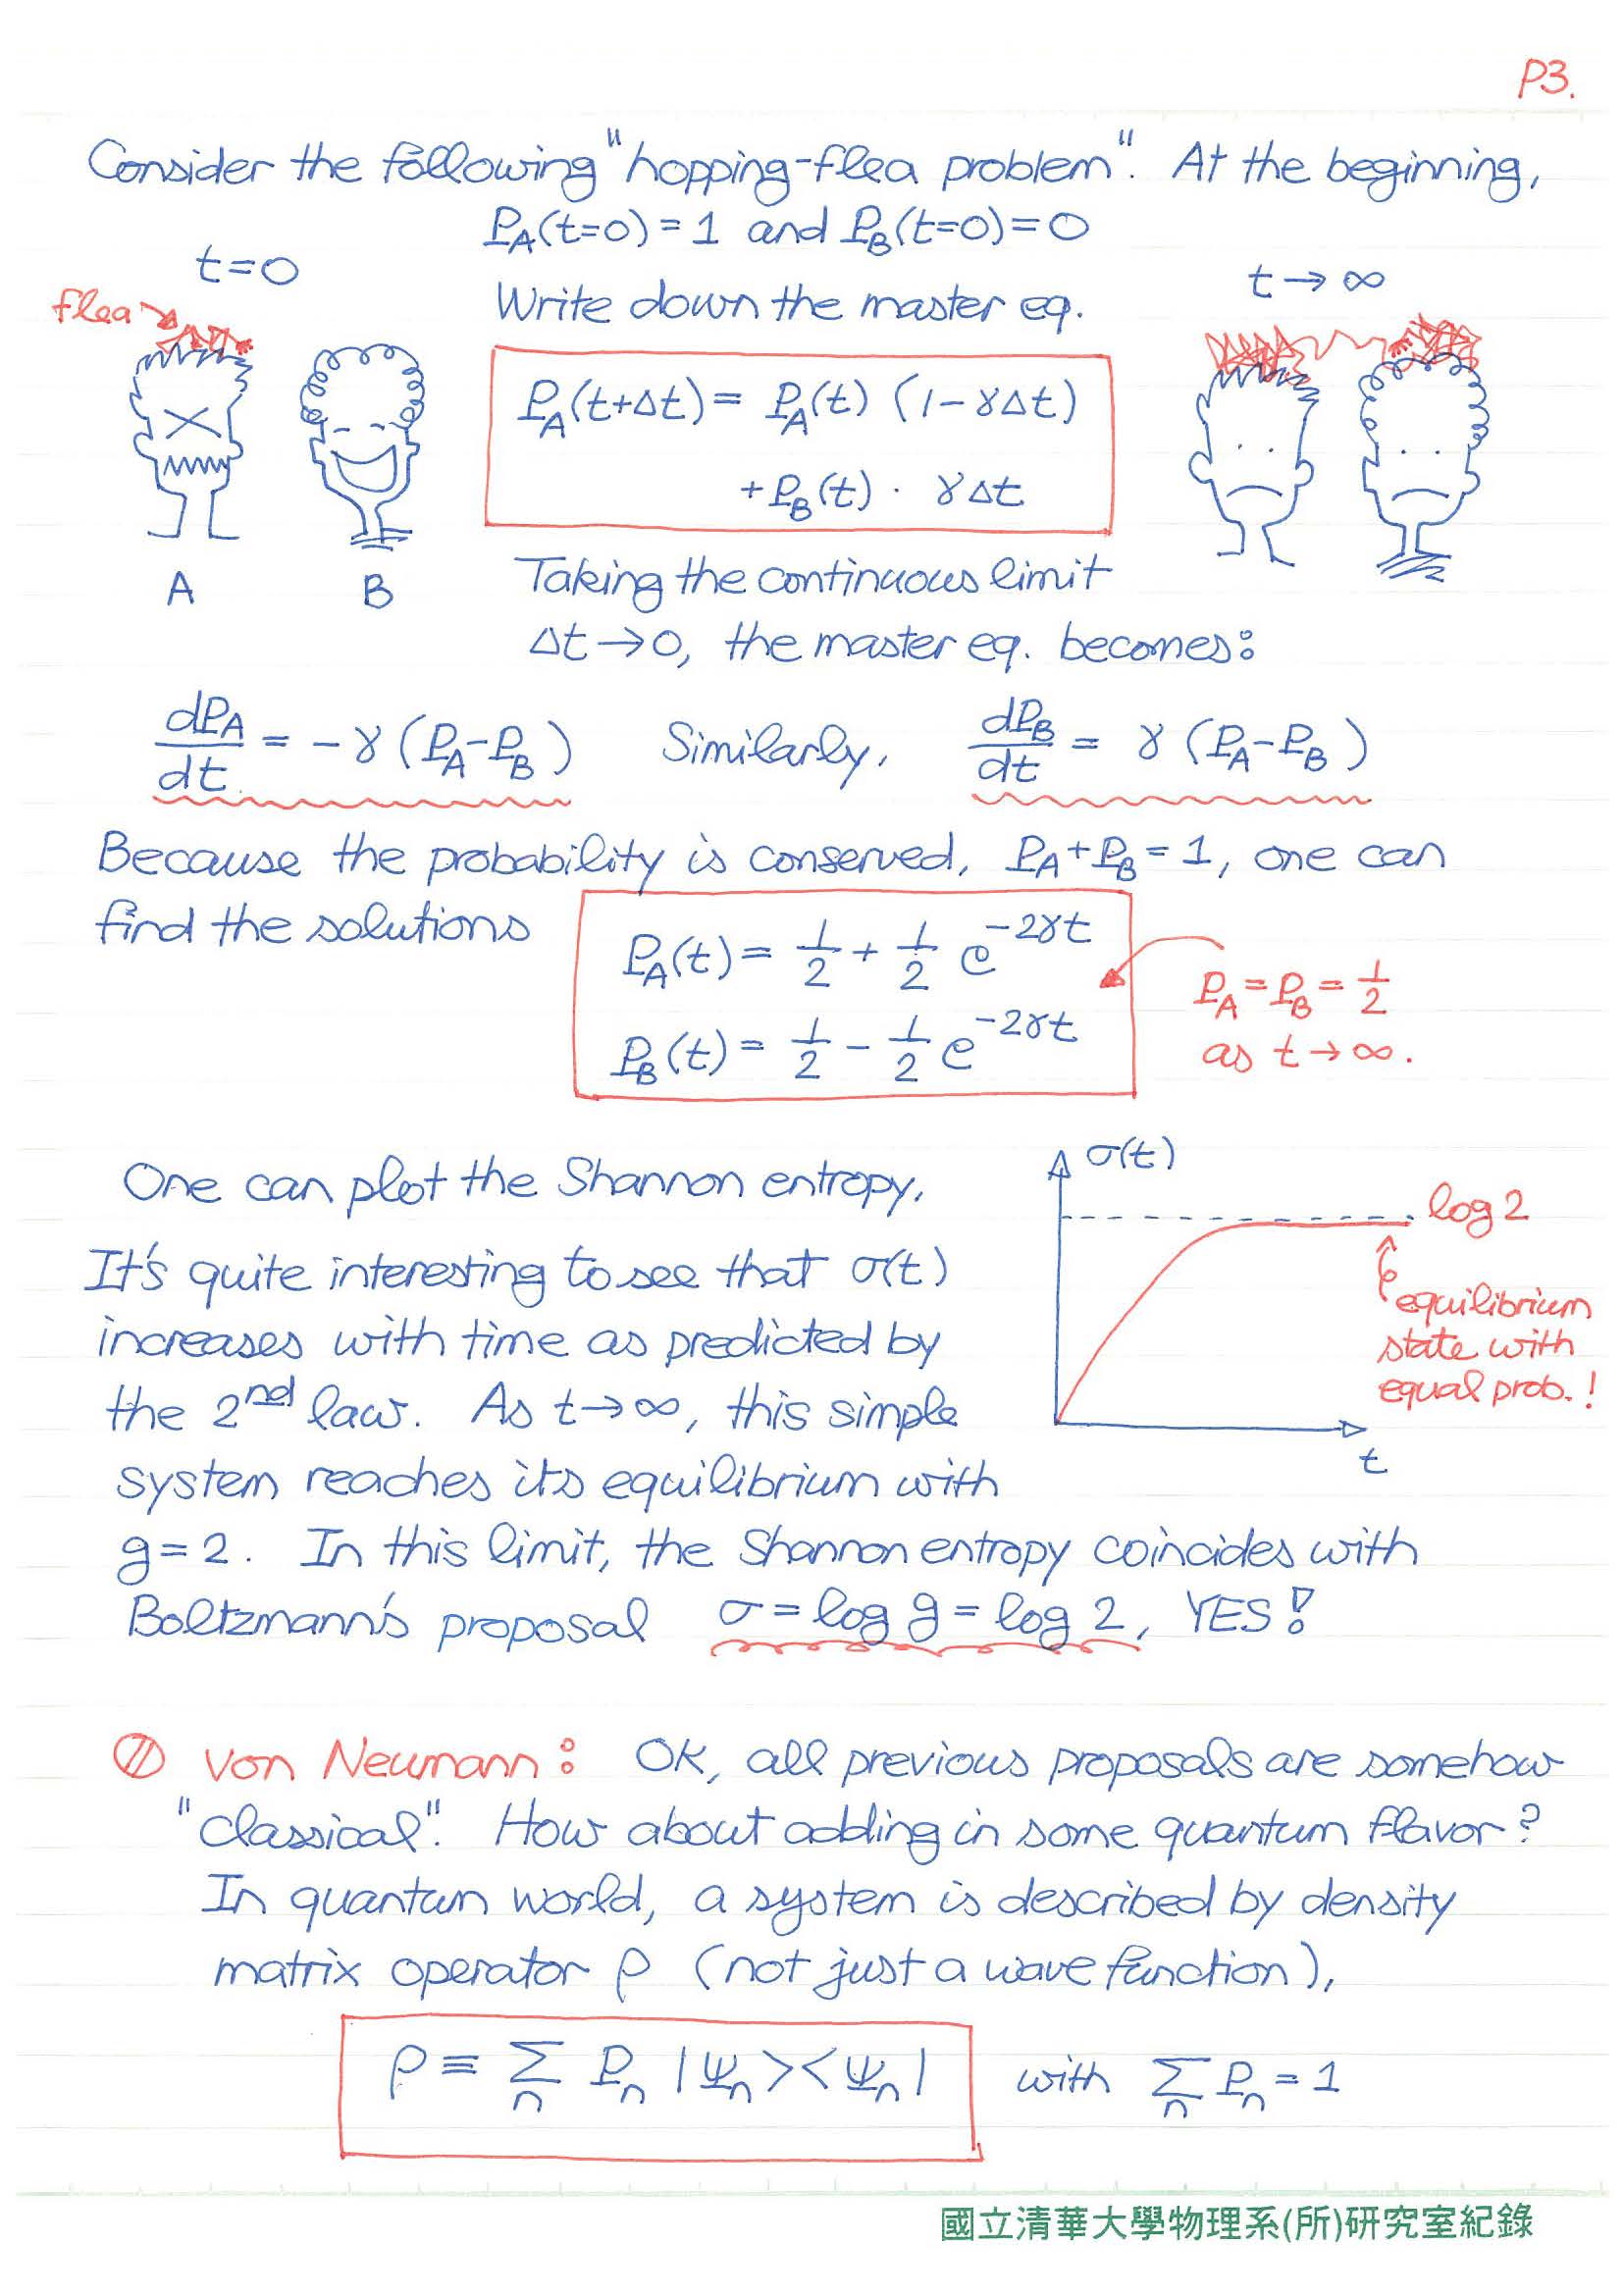 P3.
Consider the following "hopping-flea problem". At the beginning,
P_A(t=0) = 1 and P_B(t=0) = 0
t=0
t→∞
flea
Write down the master eq.
P_A(t+Δt) = P_A(t) (1-γΔt)
+P_B(t) · γΔt
A
B
Taking the continuous limit
Δt→0, the master eq. becomes:
dP_A/dt = -γ(P_A-P_B) Similarly, dP_B/dt = γ(P_A-P_B)
Because the probability is conserved, P_A+P_B=1, one can
find the solutions
P_A(t) = 1/2 + 1/2 e^{-2γt}
P_B(t) = 1/2 - 1/2 e^{-2γt}
P_A = P_B = 1/2
as t→∞.
One can plot the Shannon entropy.
It's quite interesting to see that σ(t)
increases with time as predicted by
the 2nd law. As t→∞, this simple
system reaches its equilibrium with
σ(t)
log 2
equilibrium
state with
equal prob.!
t
g=2. In this limit, the Shannon entropy coincides with
Boltzmann's proposal σ = log g = log 2, YES!
von Neumann: OK, all previous proposals are somehow
"classical". How about adding in some quantum flavor?
In quantum world, a system is described by density
matrix operator ρ (not just a wave function),
ρ ≡ Σ_n P_n |Ψ_n><Ψ_n| with Σ_n P_n = 1
國立清華大學物理系(所)研究室紀錄